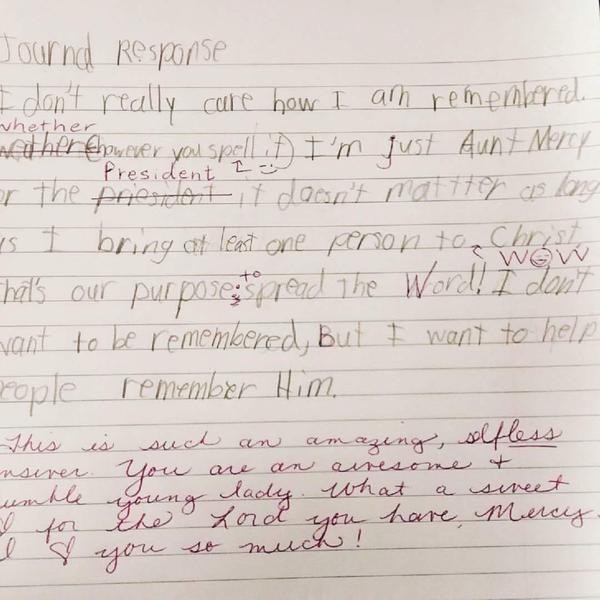 Journal Response
I don't really care how I am remembered.
whether
wethere (however you spell it) I'm just Aunt Mercy
President I
r the priesident it doesn't mattter as long
is I bring at least one person to Christ.
WOW
hat's our purpose: to spread the Word! I don't
vant to be remembered, But I want to help
eople remember Him.
This is such an amazing, selfless
nswer. You are an awesome +
umble young lady. What a sweet
♡ for the Lord you have, Mercy.
I ♡ you so much!